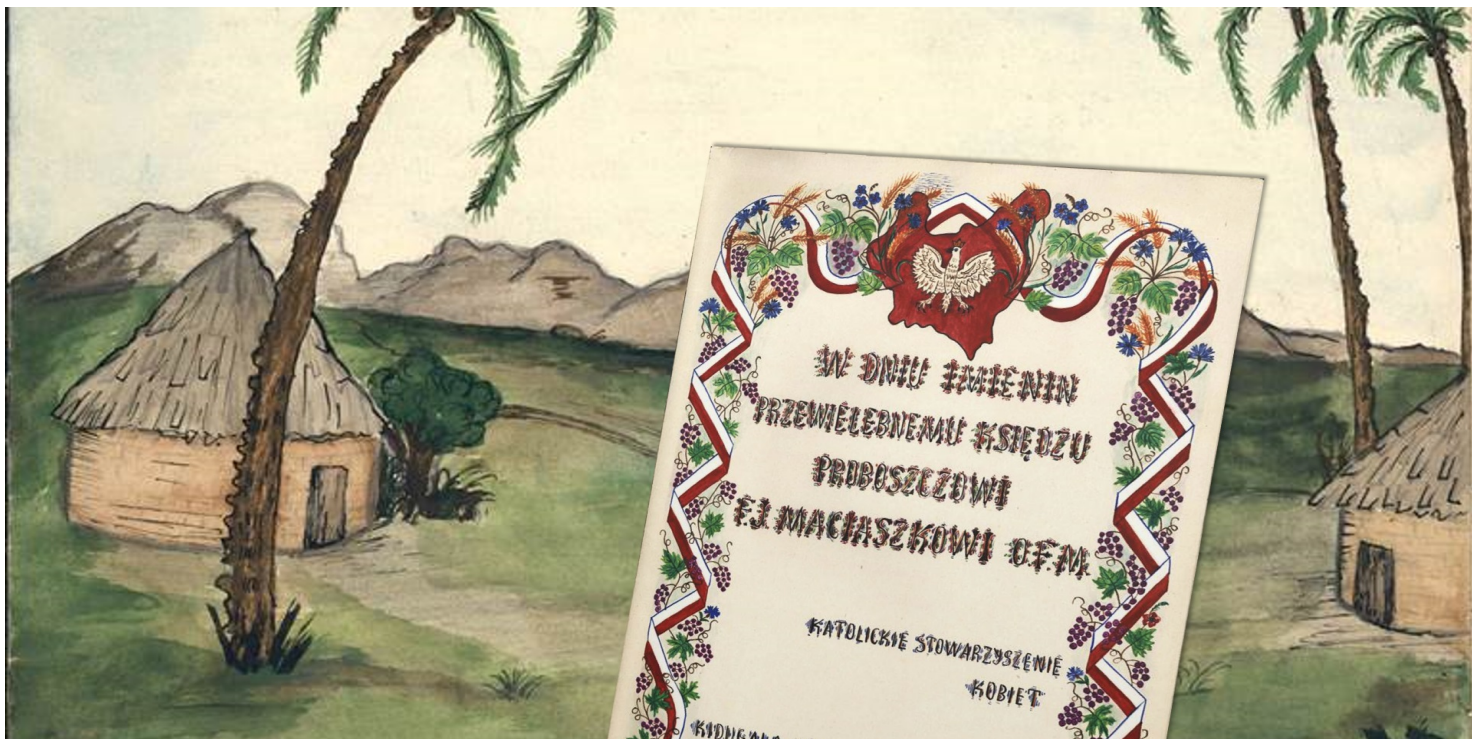 W DNIU IMIENIN
PRZEWIELEBNEMU KSIĘDZU
PROBOSZCZOWI
F.J. MACIASZKOWI OFM
KATOLICKIE STOWARZYSZENIE
KOBIET